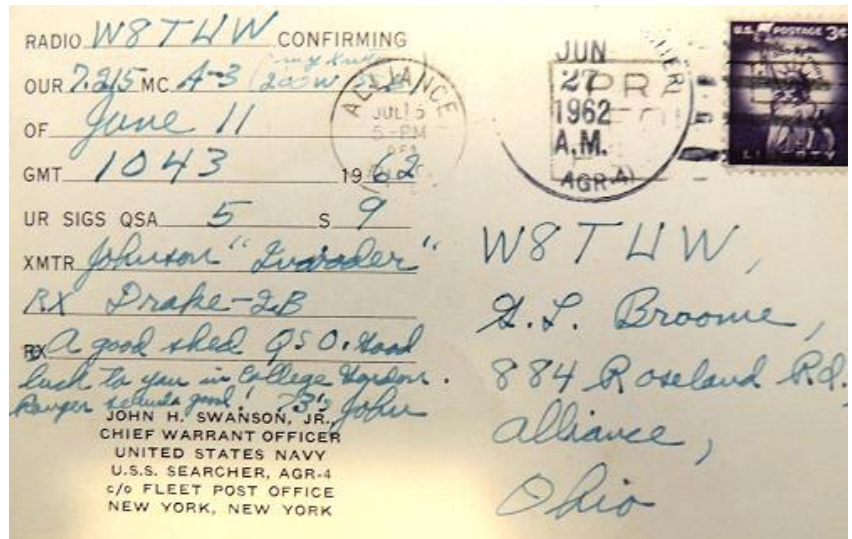 RADIO W8TUW CONFIRMING
OUR 7.215 MC A-3 (200 W
OF June 11
GMT 1043 1962
UR SIGS QSA 5 S 9
XMTR Johnson "Invader"
RX Drake-2B
A good shed QSO. Good
luck to you in College Gordon.
Ranger sounds good! 73's John
JOHN H. SWANSON, JR.,
CHIEF WARRANT OFFICER
UNITED STATES NAVY
U.S.S. SEARCHER, AGR-4
c/o FLEET POST OFFICE
NEW YORK, NEW YORK
ALLIANCE
JUL 5
5-PM
JUN
27
1962
A.M.
AGR-4)
U.S. POSTAGE 3¢
LIBERTY
W8TUW,
G.L. Broome,
884 Roseland Rd.,
Alliance,
Ohio